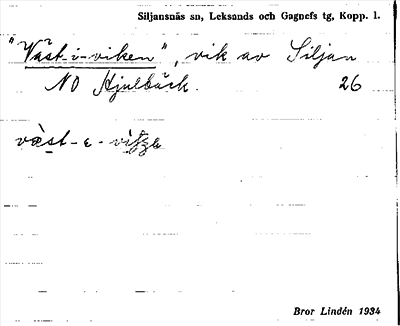 Siljansnäs sn, Leksands och Gagnefs tg, Kopp. l.
"Väst-i-viken", vik av Siljan
NO Hjulbäck. 26
Bror Lindén 1934